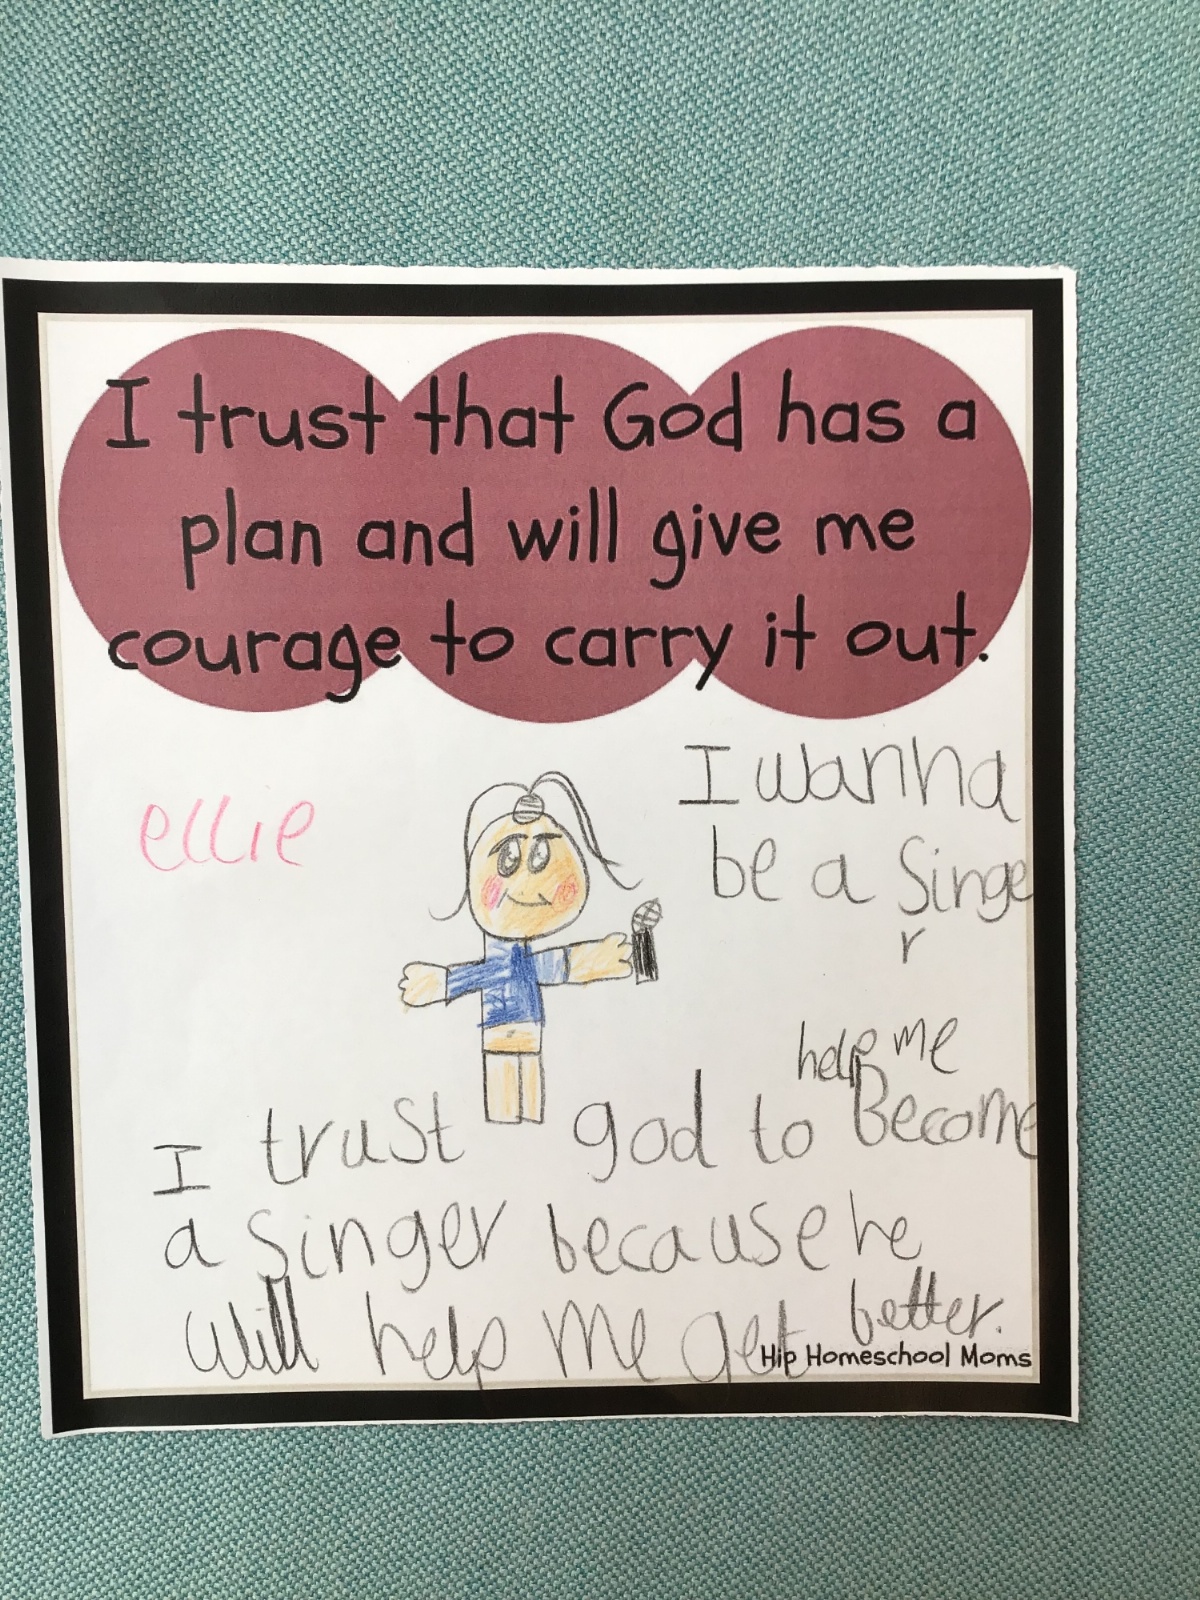 I trust that God has a
plan and will give me
courage to carry it out.
ellie
I wanna
be a singe
r
help me
I trust god to Become
a singer because he
will help me get better.
Hip Homeschool Moms